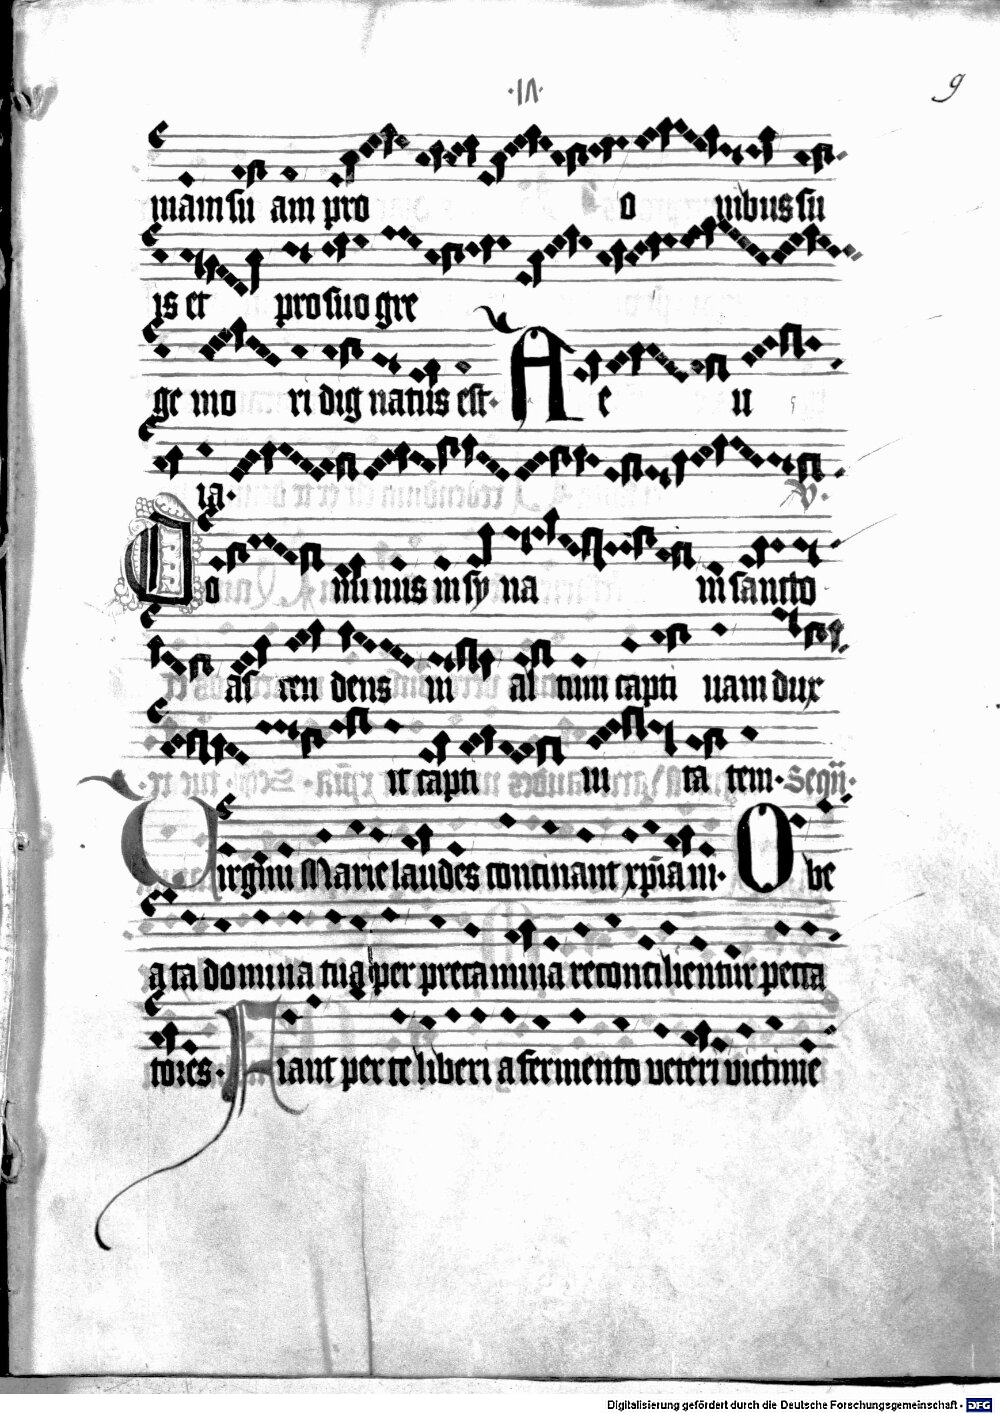 ·ıʌ·
9
mam su am pro o vibus su
is et pro suo gre
ge mo ri dig natus est· A e u
ia· V·
Do minus in sy na in sancto
as cen dens in al tum capti uam dux
it capti ui ta tem· Seqū·
Virgini Marie laudes concinant xp̄iani· O be
a ta domina tua per precamina reconcilientur pecca
tores· Fiant per te liberi a fermento veteri victime
Digitalisierung gefördert durch die Deutsche Forschungsgemeinschaft - DFG